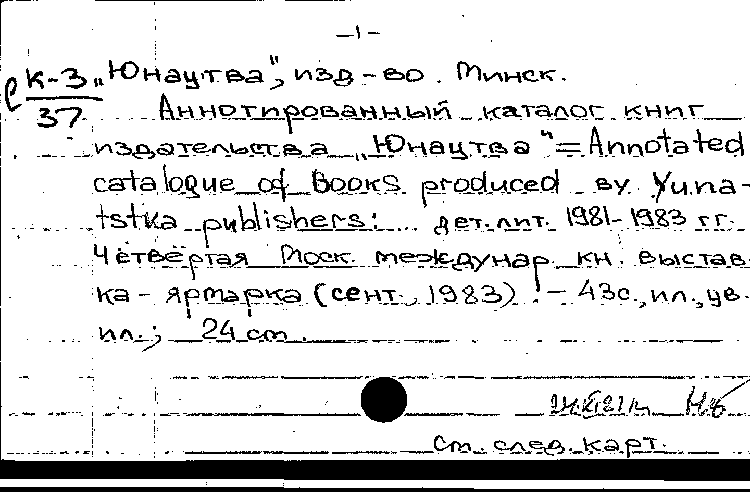 -1-
К-3 „Юнацтва", изд-во. Минск.
37 Аннотированный каталог книг
издательства „Юнацтва" = Annotated
catalogue of Books produced by Yuna-
tstva publishers: дет. лит. 1981-1983 гг.
Четвёртая Моск. междунар. кн. выстав-
ка-ярмарка (сент., 1983). - 43с., ил., цв.
ил.; 24 cm.
См. след. карт.